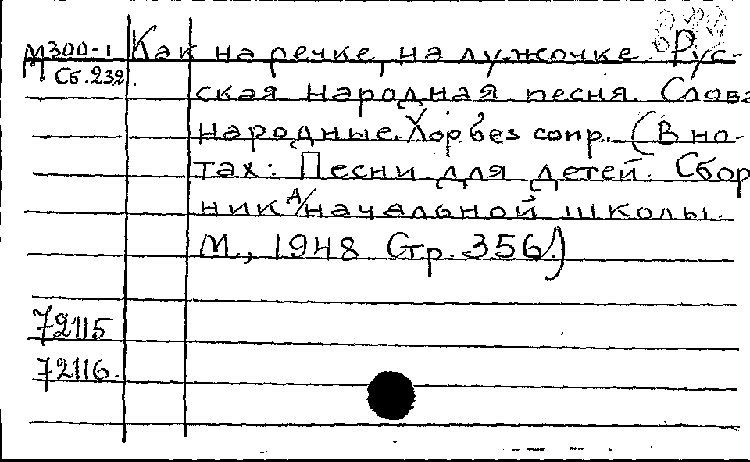 М 300-1 Как на речке, на лужочке. Рус-
Сб. 232. ская народная песня. Слова
народные. Хор без сопр. (В но-
тах: Песни для детей. Сбор
ник д/начальной школы.
М., 1948 Стр. 356.)
72115
72116.